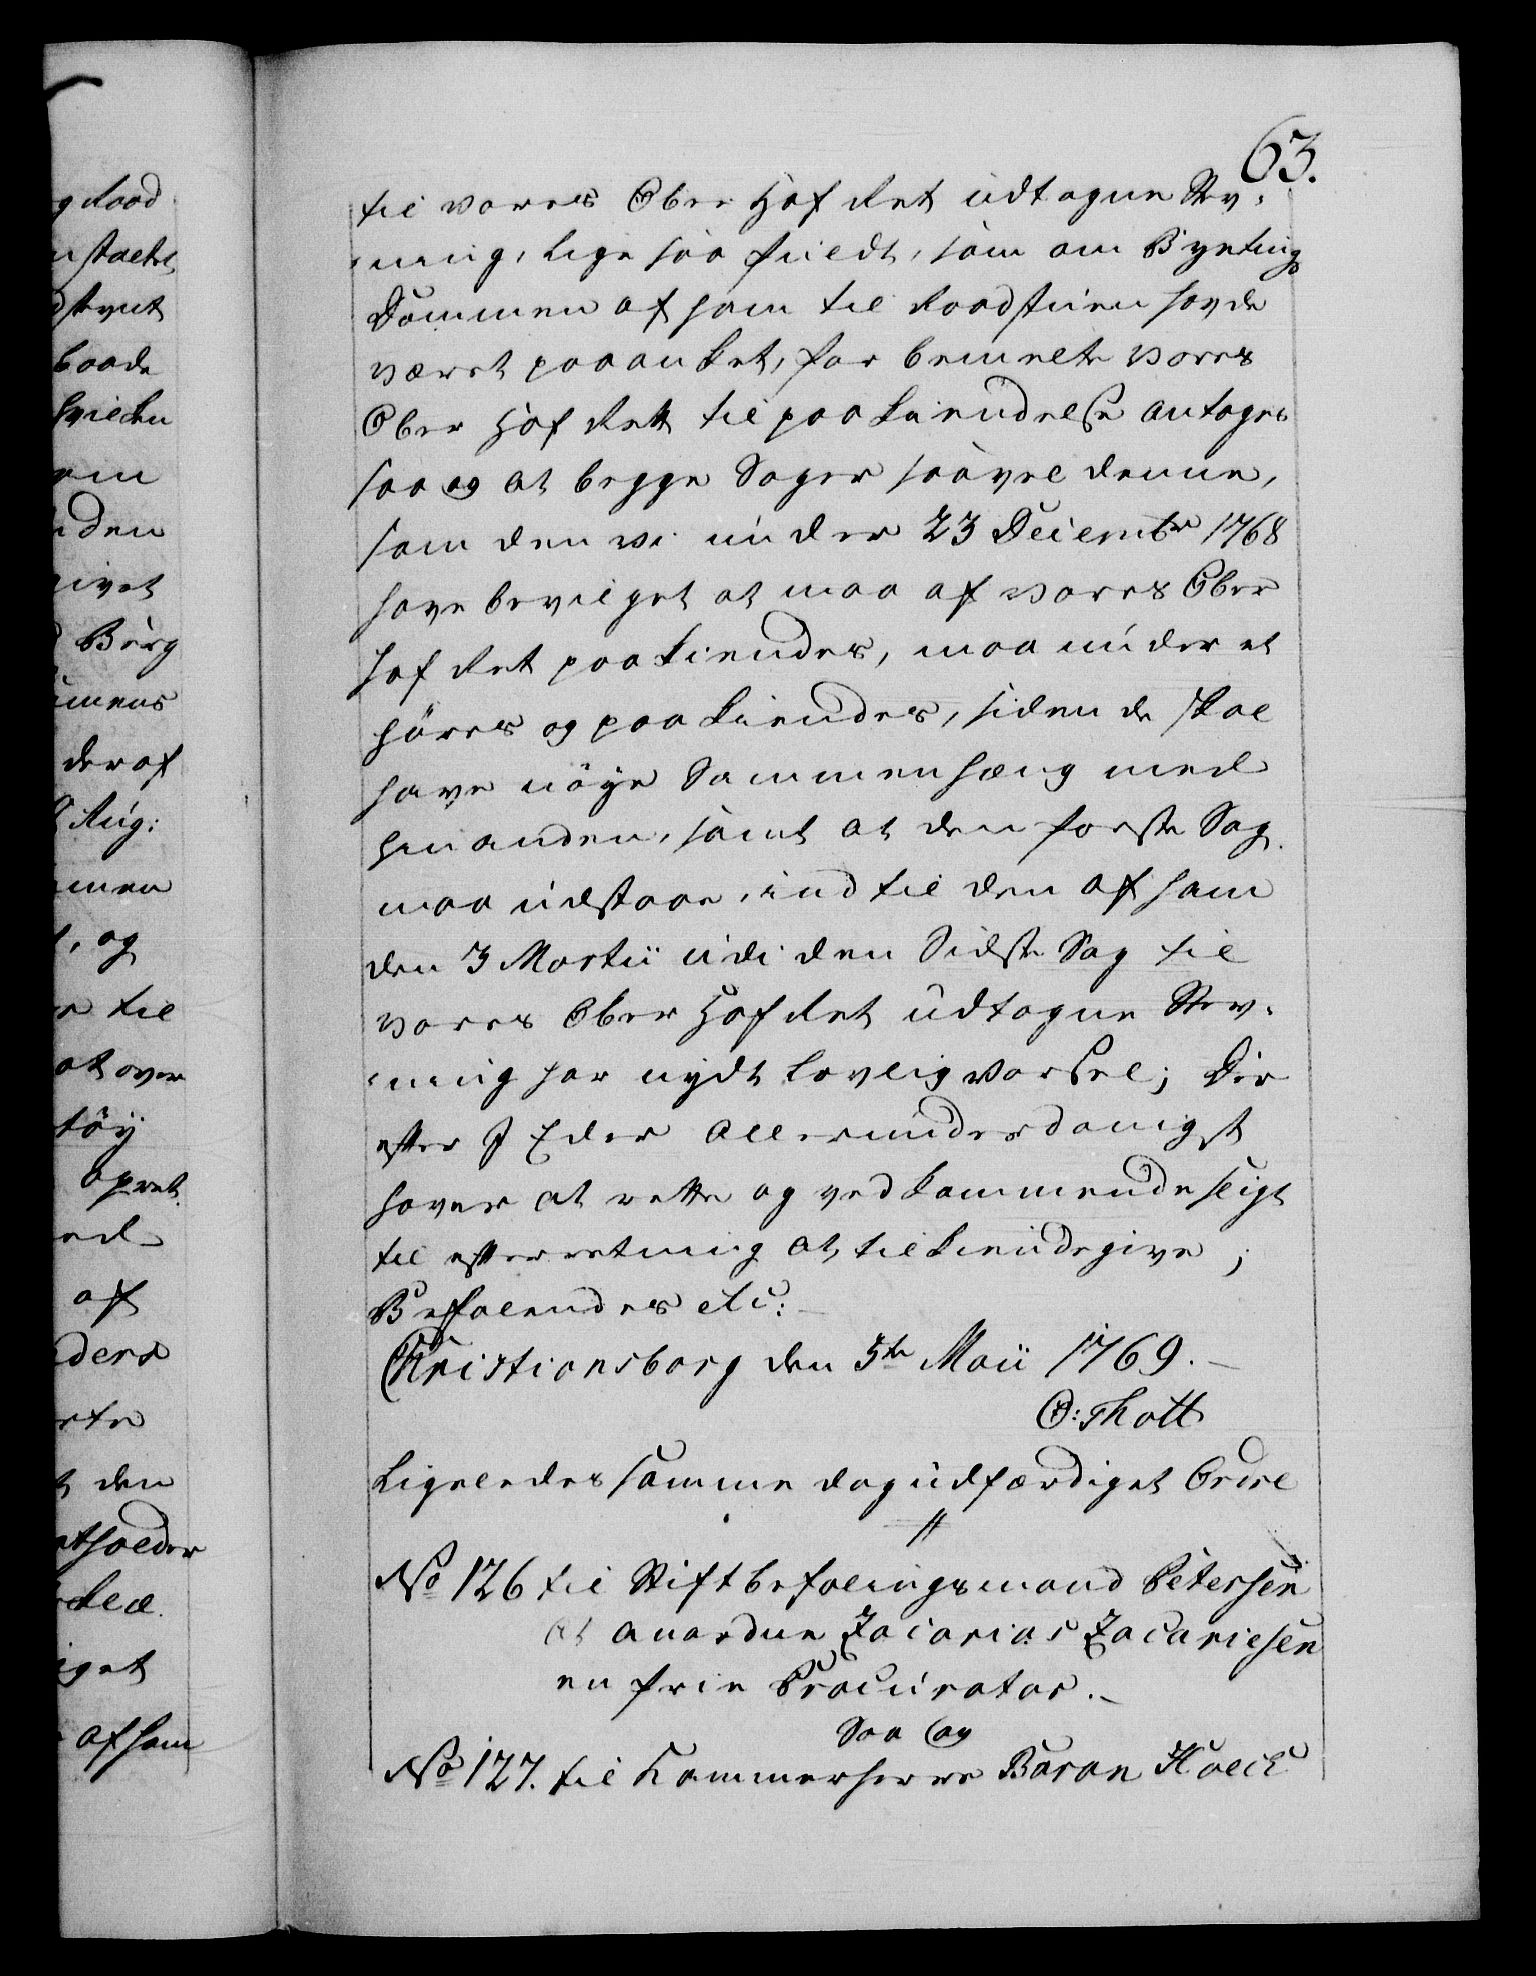 63.
til vores Ober Hof Ret udtagne Stev-
ning, lige saa fuldt, som om Byetings
Dommen af ham til Raadstuen havde
været paaanket, for bemelte vores
Ober Hof Rett til paakiendelse antages
saa og at begge Sager saavel denne,
som den vi under 23 Decembr 1768
have bevilget at maa af vores Ober
Hof Ret paakiendes, maa under et
höres og paakiendes, siden de skal
have nöye Sammenhæng med
hinanden, samt at den forste Sag
maa udstaae, indtil den af ham
den 3 Martii udi den Sidste Sag til
vores Ober Hof Ret udtagne Stev-
ning har nydt lovlig Varsel; Der
efter I Eder allerunderdanigst
haver at rette og vedkommende sligt
til efterretning at tilkiendegive;
Befalendes etc:
Christiansborg den 5te Maii 1769.
O: Thott
Ligeledes samme dag udfærdiget Ordre
No 126 til Stiftbefalingsmand Petersen
at anordne Zacarias Zacariesen
en frie Procurator.
Saa og
No 127. til Kammerherre Baron Huelk
g Raad
baade
den
givet
Berg
deraf
Aug:
men
, og
til
at over
töy
opret
af
den
af ham